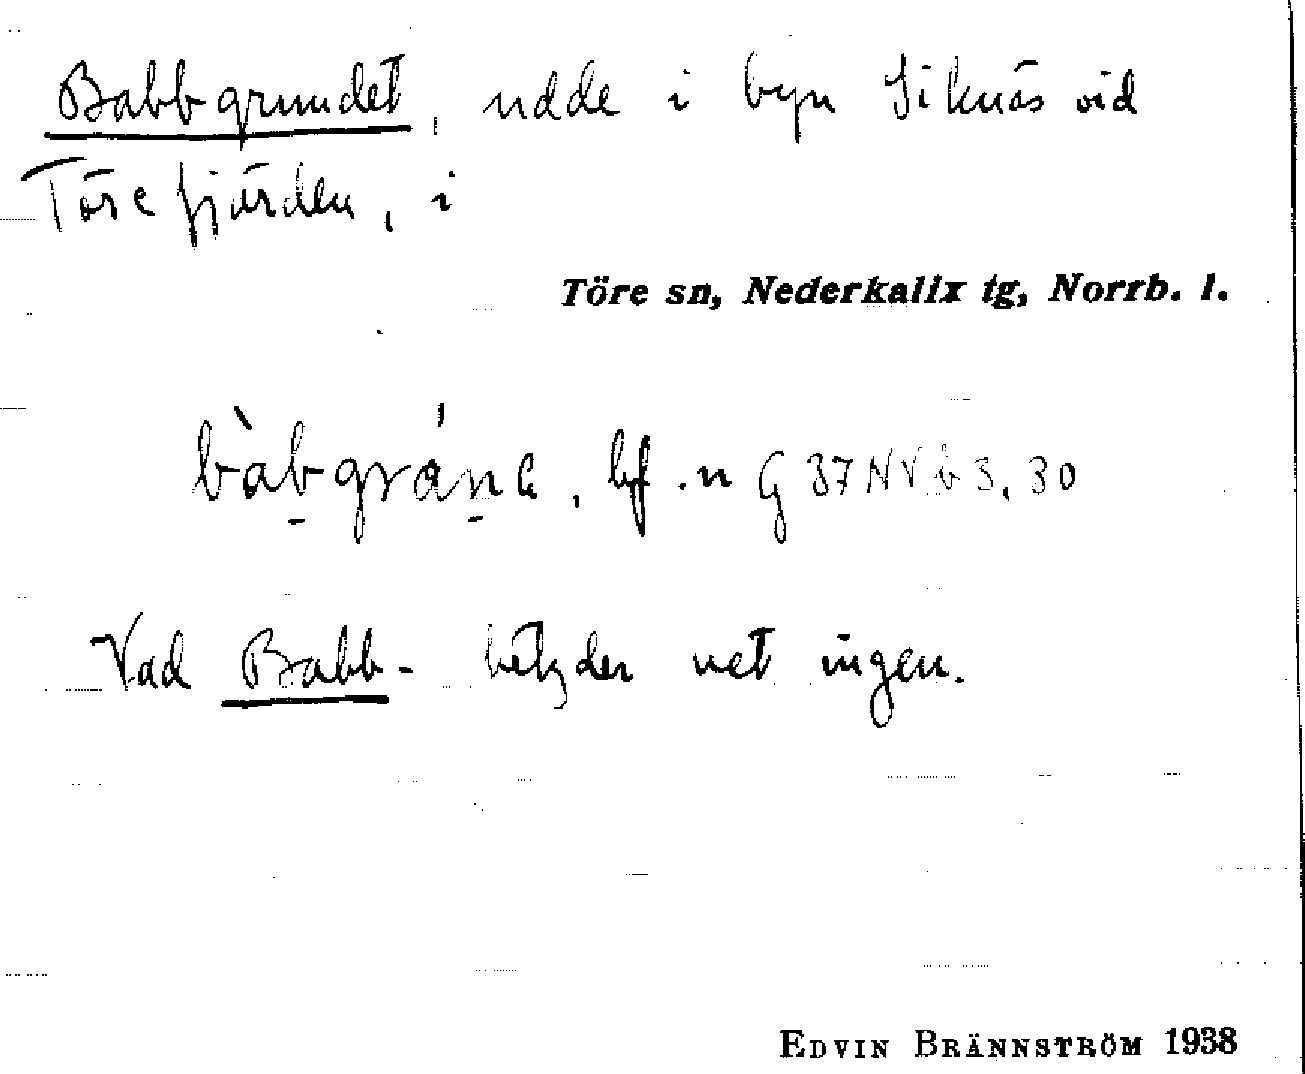 Babbgrundet, udde i byn Siknäs vid
Törefjärden, i
Töre sn, Nederkalix tg, Norrb. l.
bàb̠grán̠e, bf .n G 37 NVb 3, 30
Vad Babb- betyder vet ingen.
EDVIN BRÄNNSTRÖM 1938